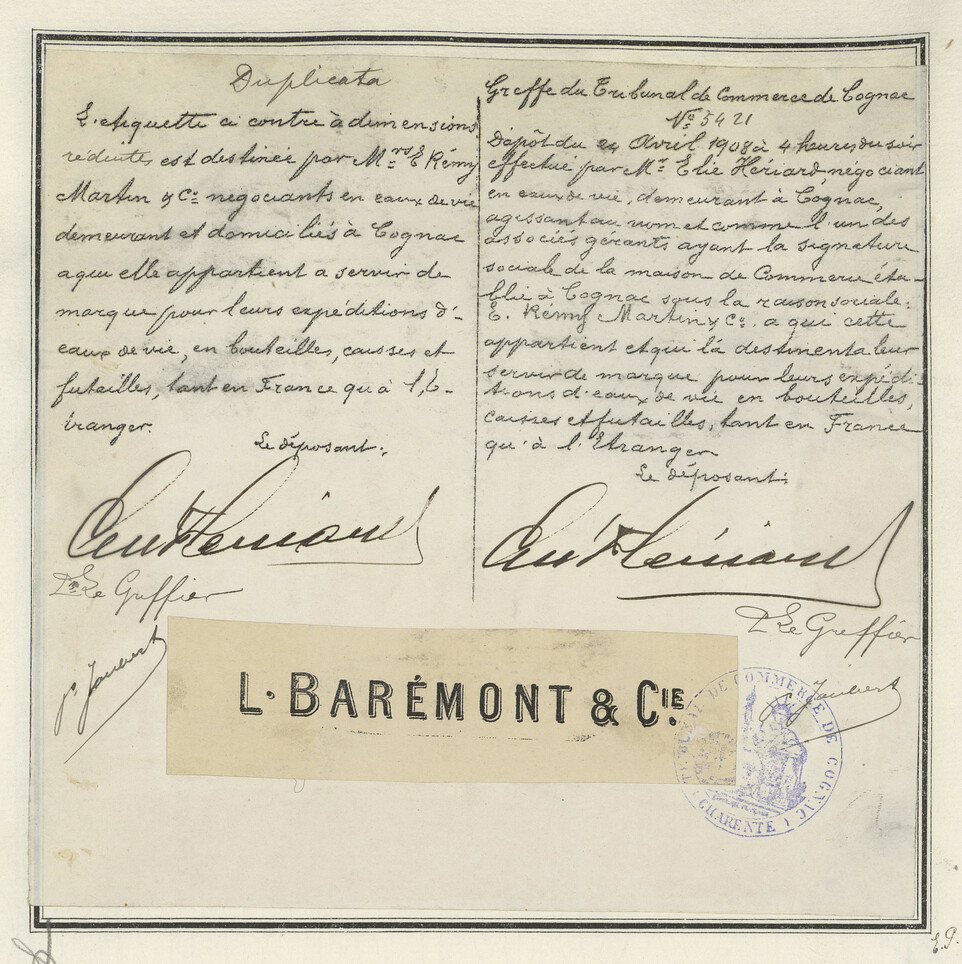 Duplicata
L'étiquette ci contre à dimensions
réduites est destinée par Mrs E. Rémy
Martin & Co negociants en eaux de vie
demeurant et domiciliés à Cognac
a qui elle appartient a servir de
marque pour leurs expéditions d'-
eaux de vie, en bouteilles, caisses et
futailles, tant en France qu'à l'E-
tranger.
Le déposant:
P. Le Greffier
Jaubert
Greffe du Tribunal de Commerce de Cognac
No 5421
Dépôt du Avril 1908 à 4 heures du soir
effectué par Mr Elie Hériard, négociant
en eaux de vie, demeurant à Cognac,
agissant au nom et comme l'un des
associés gérants ayant la signature
sociale de la maison de Commerce éta-
blie à Cognac sous la raison sociale:
E. Rémy Martin & Co. a qui cette
appartient et qui la destinent a leur
servir de marque pour leurs expédi-
tions d'eaux de vie en bouteilles,
caisses et futailles, tant en France
qu'à l'Etranger
Le déposant:
P. Le Greffier
Jaubert
L. BARÉMONT & CIE.
TRIBUNAL DE COMMERCE DE COGNAC
(CHARENTE)
E.P.